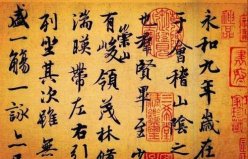 永和九年歲在
于會稽山陰之
也群賢畢至少
有崇山峻領茂林脩
湍暎帶左右引
列坐其次雖無
盛一觴一詠